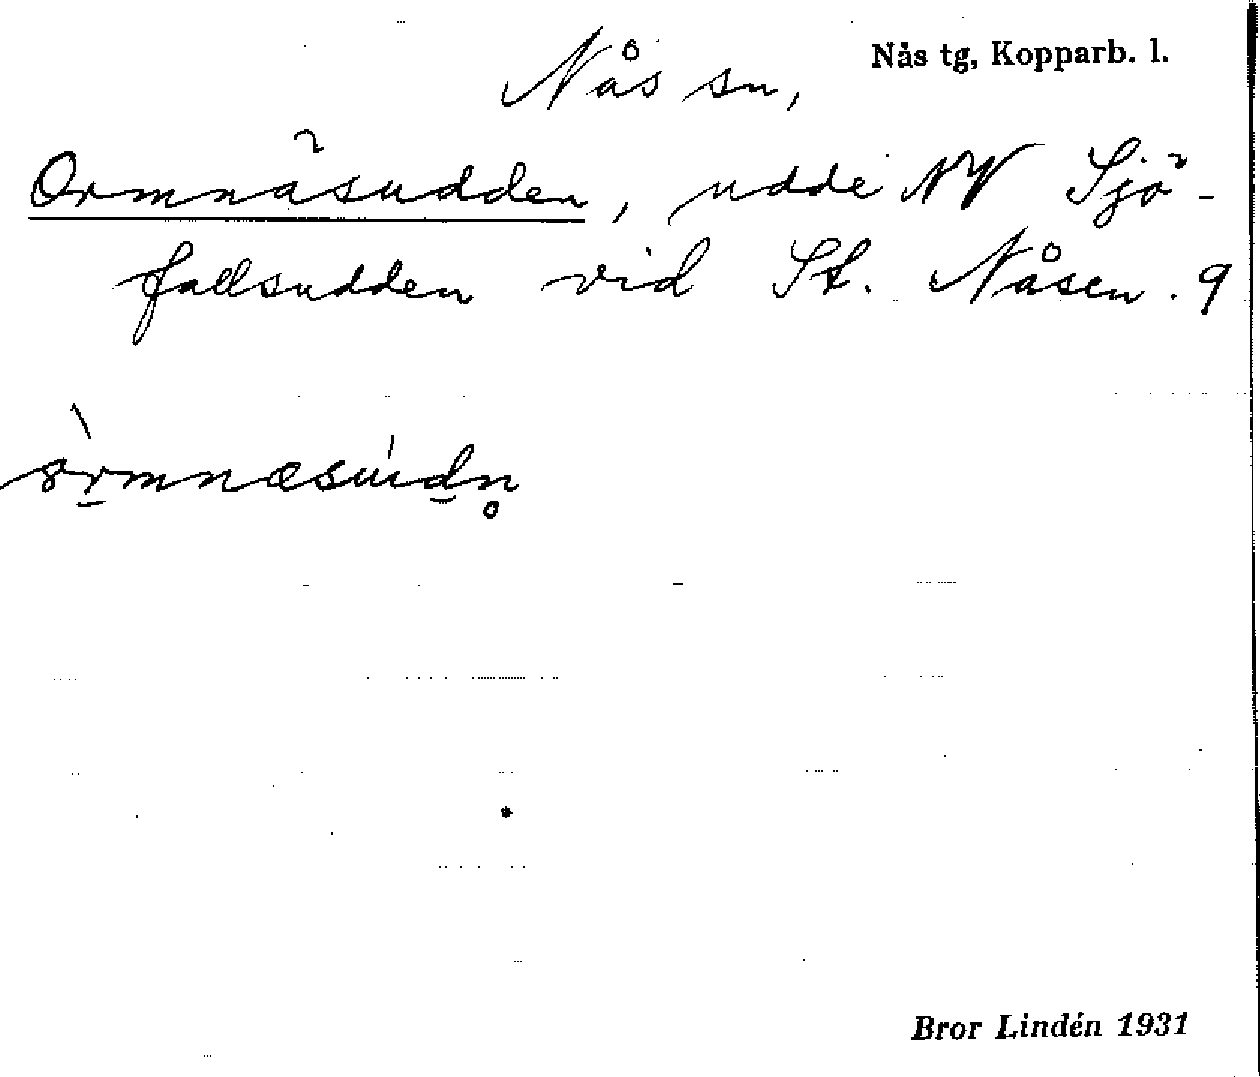 Nås tg, Kopparb. l.
Nås sn,
Ormnäsudden, udde NV Sjö-
fallsudden vid St. Nåsen. 9
Bror Lindén 1931